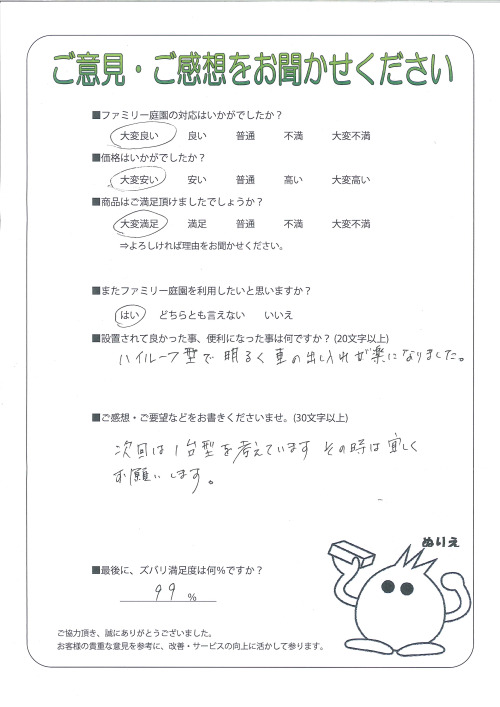 ご意見・ご感想をお聞かせください
■ファミリー庭園の対応はいかがでしたか？
大変良い 良い 普通 不満 大変不満
■価格はいかがでしたか？
大変安い 安い 普通 高い 大変高い
■商品はご満足頂けましたでしょうか？
大変満足 満足 普通 不満 大変不満
⇒よろしければ理由をお聞かせください。
■またファミリー庭園を利用したいと思いますか？
はい どちらとも言えない いいえ
■設置されて良かった事、便利になった事は何ですか？(20文字以上)
ハイルーフ型で明るく車の出し入れが楽になりました。
■ご感想・ご要望などをお書きくださいませ。(30文字以上)
次回は1台型を考えています その時は宜しく
お願いします。
ぬりえ
■最後に、ズバリ満足度は何％ですか？
99 ％
ご協力頂き、誠にありがとうございました。
お客様の貴重な意見を参考に、改善・サービスの向上に活かして参ります。